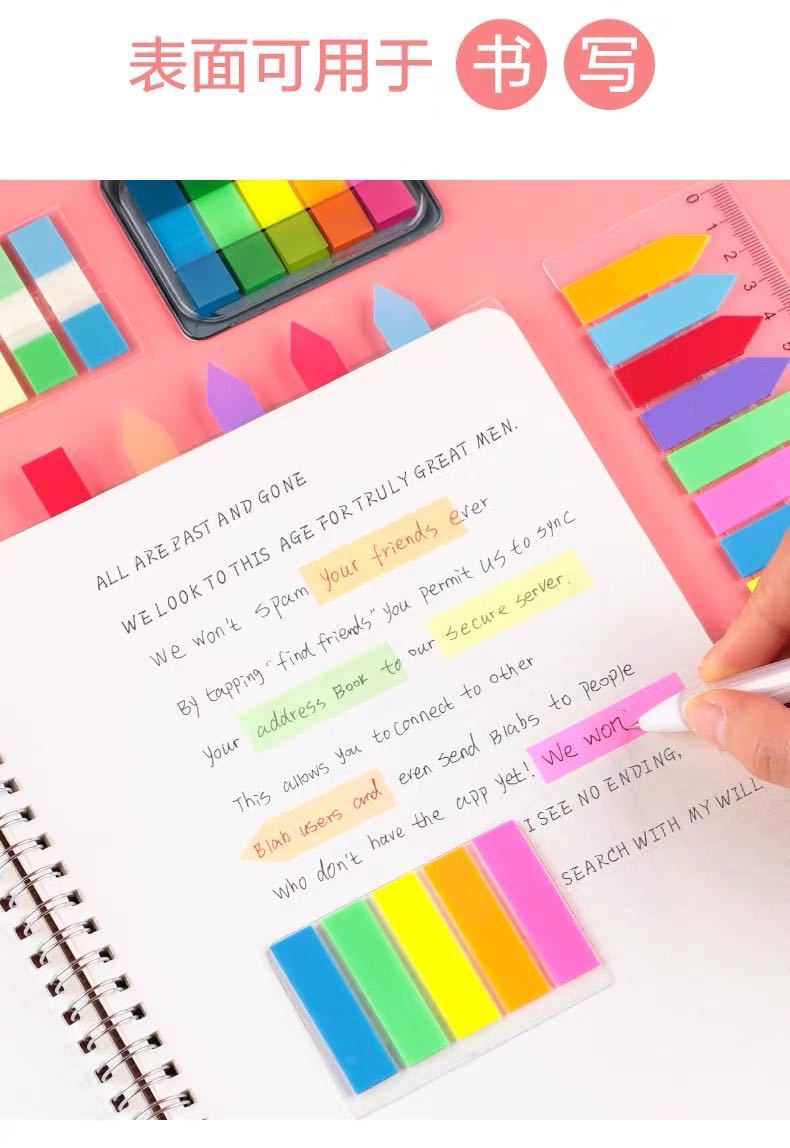 表面可用于 书 写
0 1 2 3 4 5
ALL ARE PAST AND GONE
WE LOOK TO THIS AGE FOR TRULY GREAT MEN.
We won't spam your friends ever.
By tapping "find friends" you permit us to sync
Your address Book to our secure server.
This allows you to connect to other
Blab users and even send Blabs to people
Who don't have the app yet! We won
I SEE NO ENDING,
SEARCH WITH MY WILL